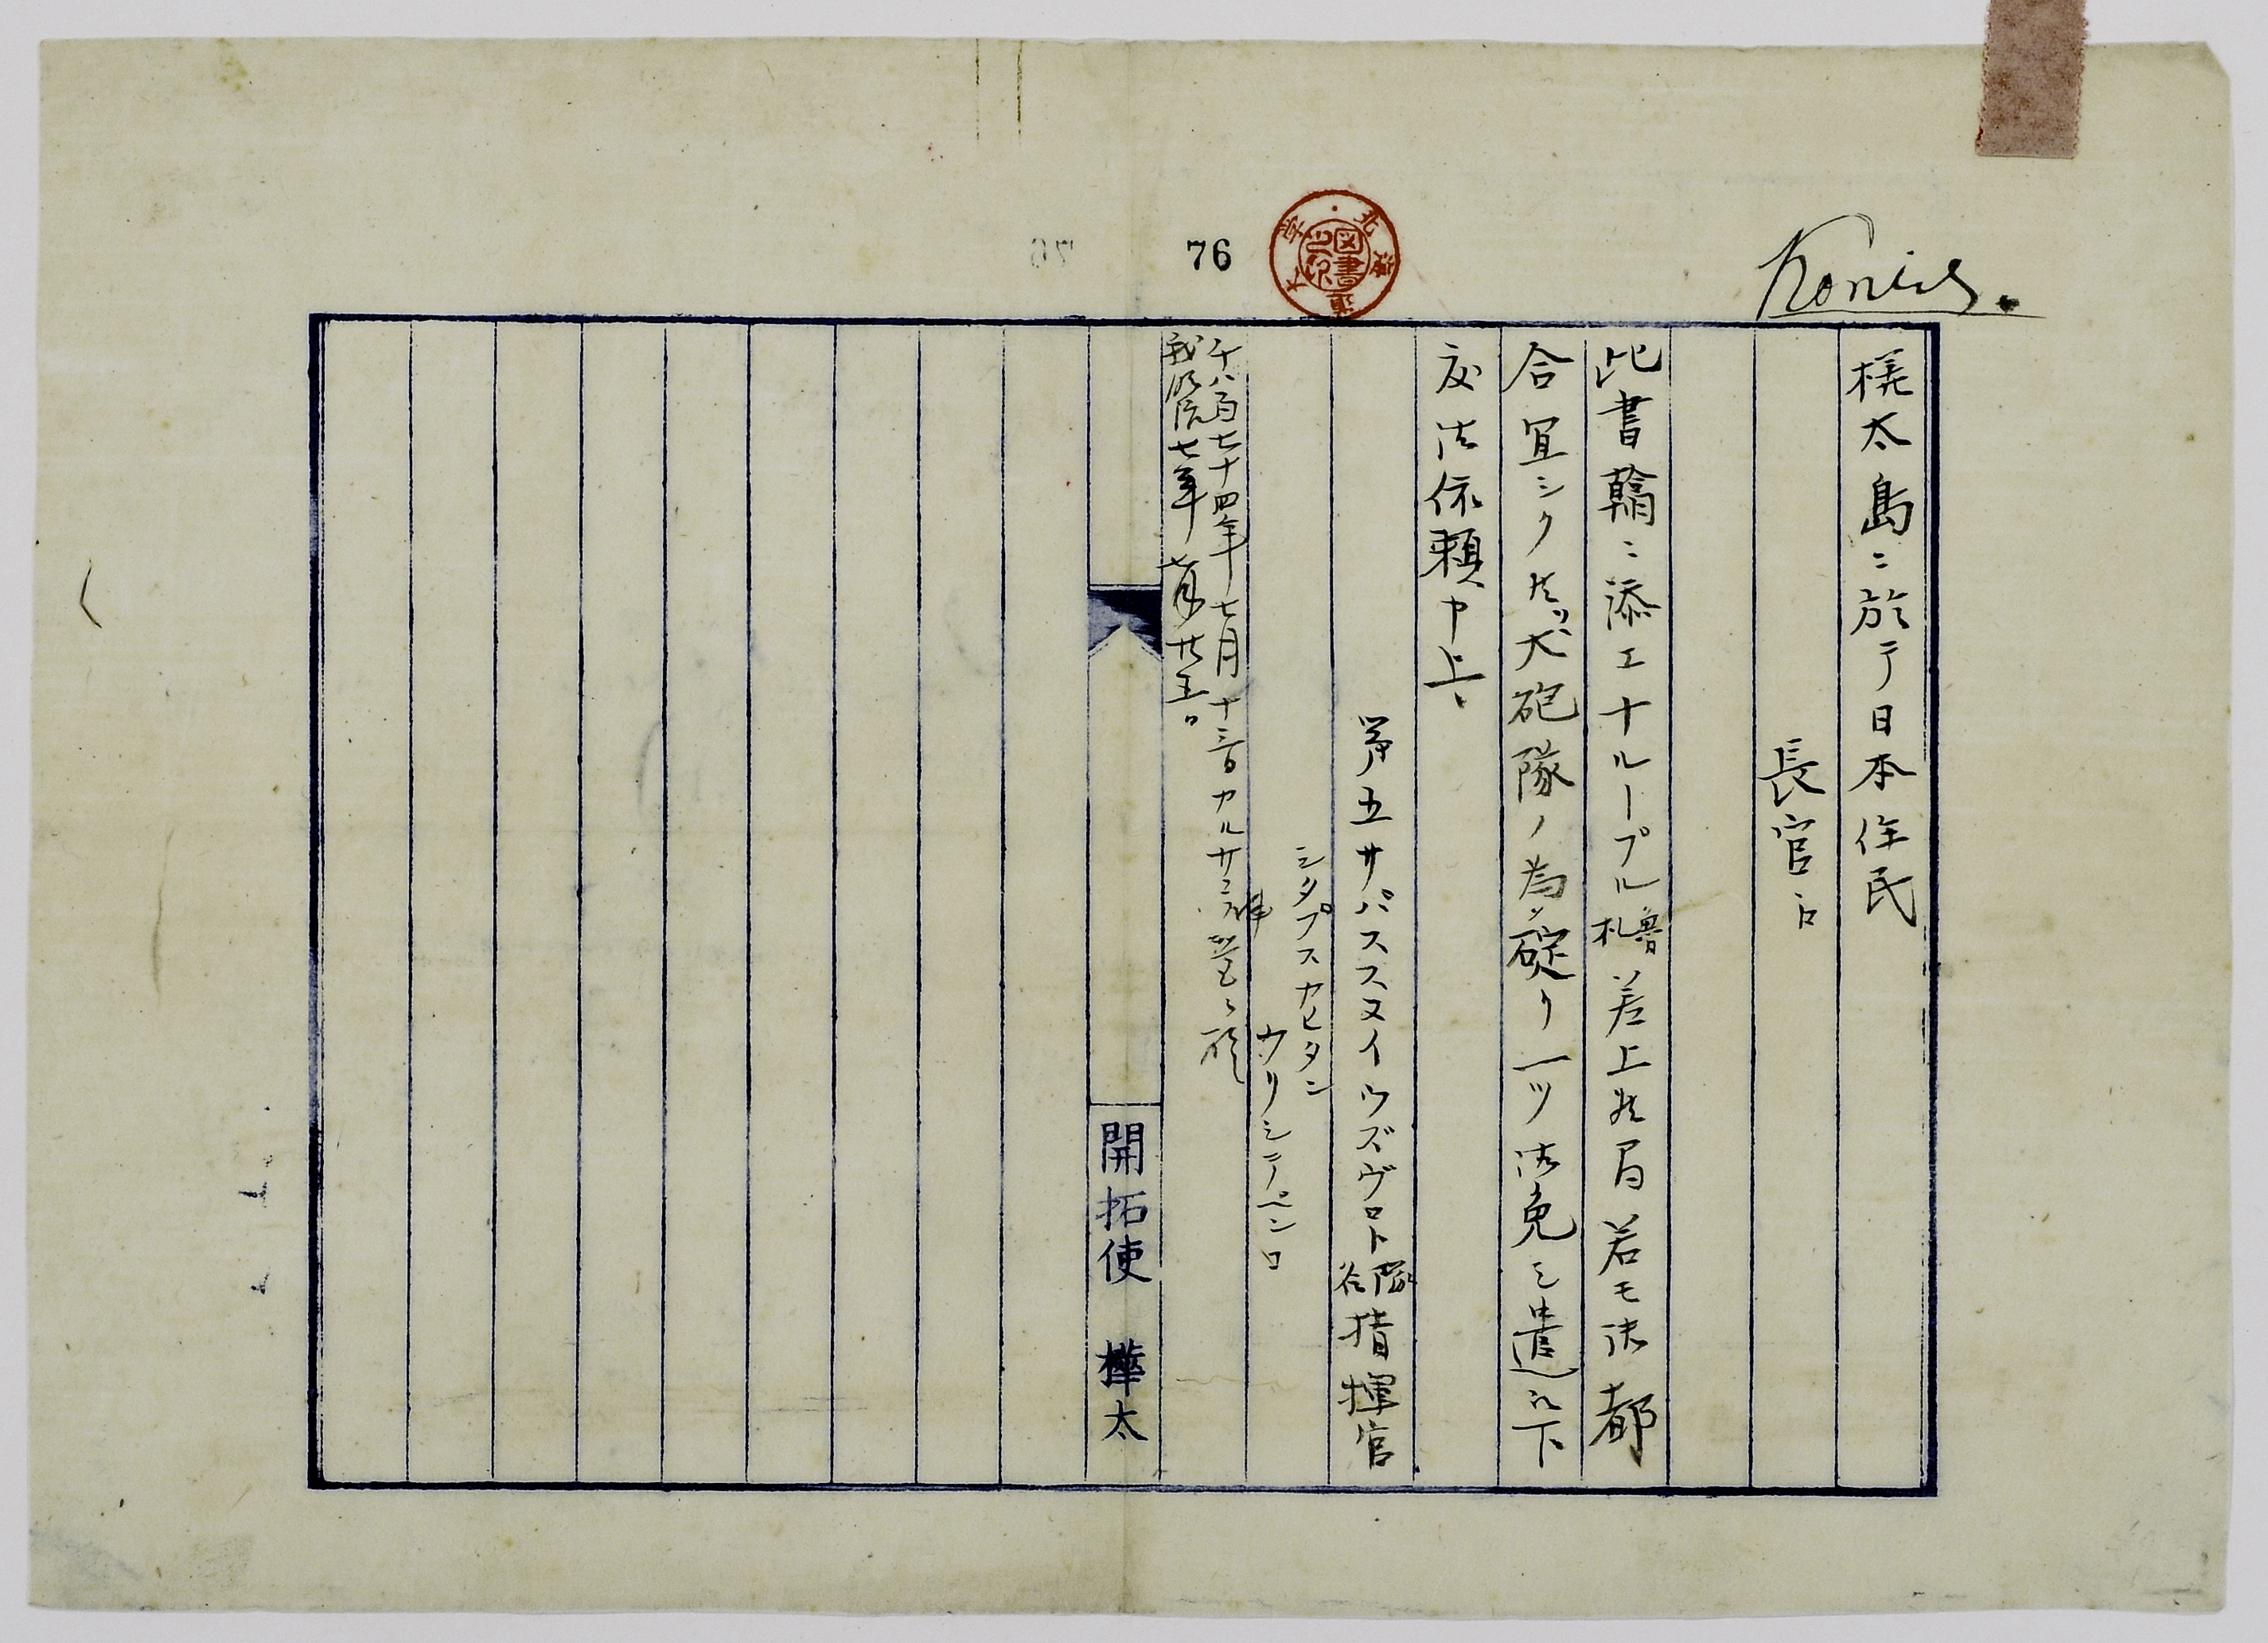 Копия.
76
樺太島ニ於テ日本住民
長官江
此書翰ニ添エ十ルーブル魯札差上候間若モ御都
合宜シク候ハヽ大砲隊ノ為メ碇リ一ツ御免シ遣ハ下
度御依頼申上候
第五サパススヌイウズヴロト隊谷指揮官
シタプスカピタン
ウリシテペンコ
千八百七十四年七月十三日カルサコフ
我明治七年七月廿五日
開拓使 樺太